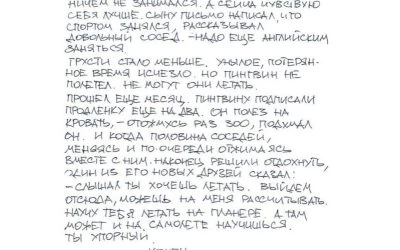 НИЧЕМ НЕ ЗАНИМАЛСЯ. А СЕЙЧАС ЧУВСТВУЮ
СЕБЯ ЛУЧШЕ. СЫНУ ПИСЬМО НАПИСАЛ, ЧТО
СПОРТОМ ЗАНЯЛСЯ, РАССКАЗЫВАЛ
ДОВОЛЬНЫЙ СОСЕД. – НАДО ЕЩЕ АНГЛИЙСКИМ
ЗАНЯТЬСЯ.
ГРУСТИ СТАЛО МЕНЬШЕ. УНЫЛОЕ, ПОТЕРЯН-
НОЕ ВРЕМЯ ИСЧЕЗЛО. НО ПИНГВИН НЕ
ПОЛЕТЕЛ. НЕ МОГУТ ОНИ ЛЕТАТЬ.
ПРОШЕЛ ЕЩЕ МЕСЯЦ. ПИНГВИНУ ПОДПИСАЛИ
ПРОДЛЕНКУ ЕЩЕ НА ДВА. ОН ПОЛЕЗ НА
КРОВАТЬ, – ОТОЖМУСЬ РАЗ 300, ПОДУМАЛ
ОН. И КОГДА ПОЛОВИНА СОСЕДЕЙ,
МЕНЯЯСЬ И ПО ОЧЕРЕДИ ОТЖИМАЯСЬ
ВМЕСТЕ С НИМ. НАКОНЕЦ РЕШИЛИ ОТДОХНУТЬ,
ОДИН ИЗ ЕГО НОВЫХ ДРУЗЕЙ СКАЗАЛ:
– СЛЫШАЛ ТЫ ХОЧЕШЬ ЛЕТАТЬ. ВЫЙДЕМ
ОТСЮДА, МОЖЕШЬ НА МЕНЯ РАССЧИТЫВАТЬ.
НАУЧУ ТЕБЯ ЛЕТАТЬ НА ПЛАНЕРЕ. А ТАМ
МОЖЕТ И НА САМОЛЕТЕ НАУЧИШЬСЯ.
ТЫ УПОРНЫЙ